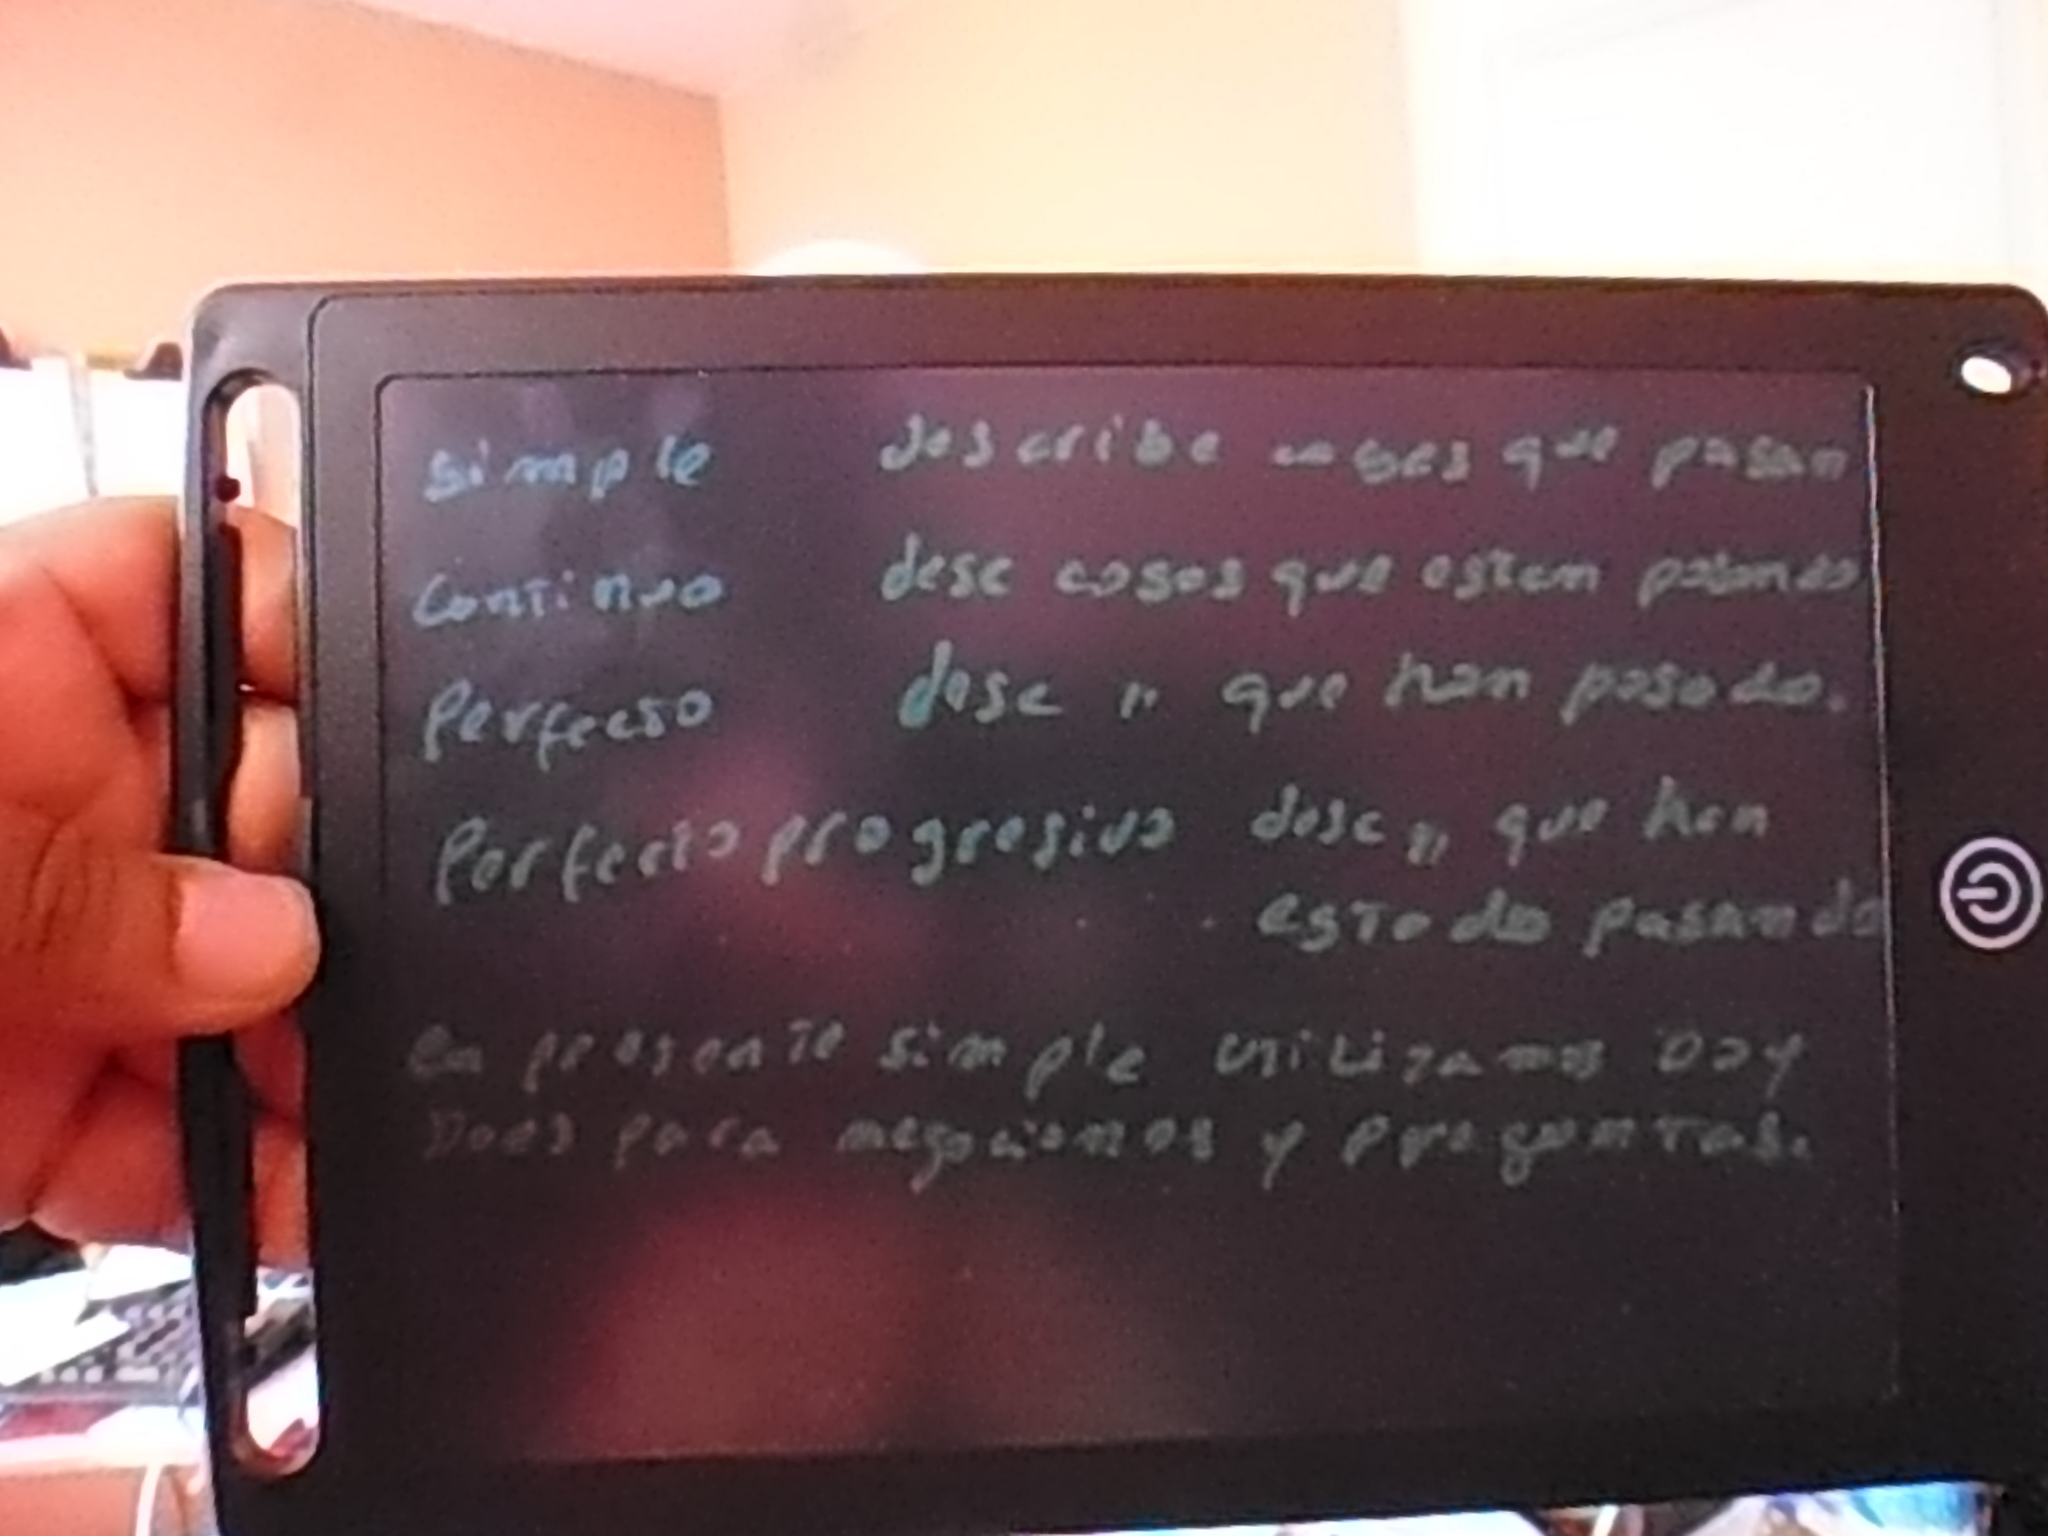 simple describe cosas que pasan
continuo desc cosas que estan pasando
Perfecto desc " que han pasado.
Perfecto progresivo desc " que han
estado pasando
en presente simple utilizamos DO y
Does para negaciones y preguntas.